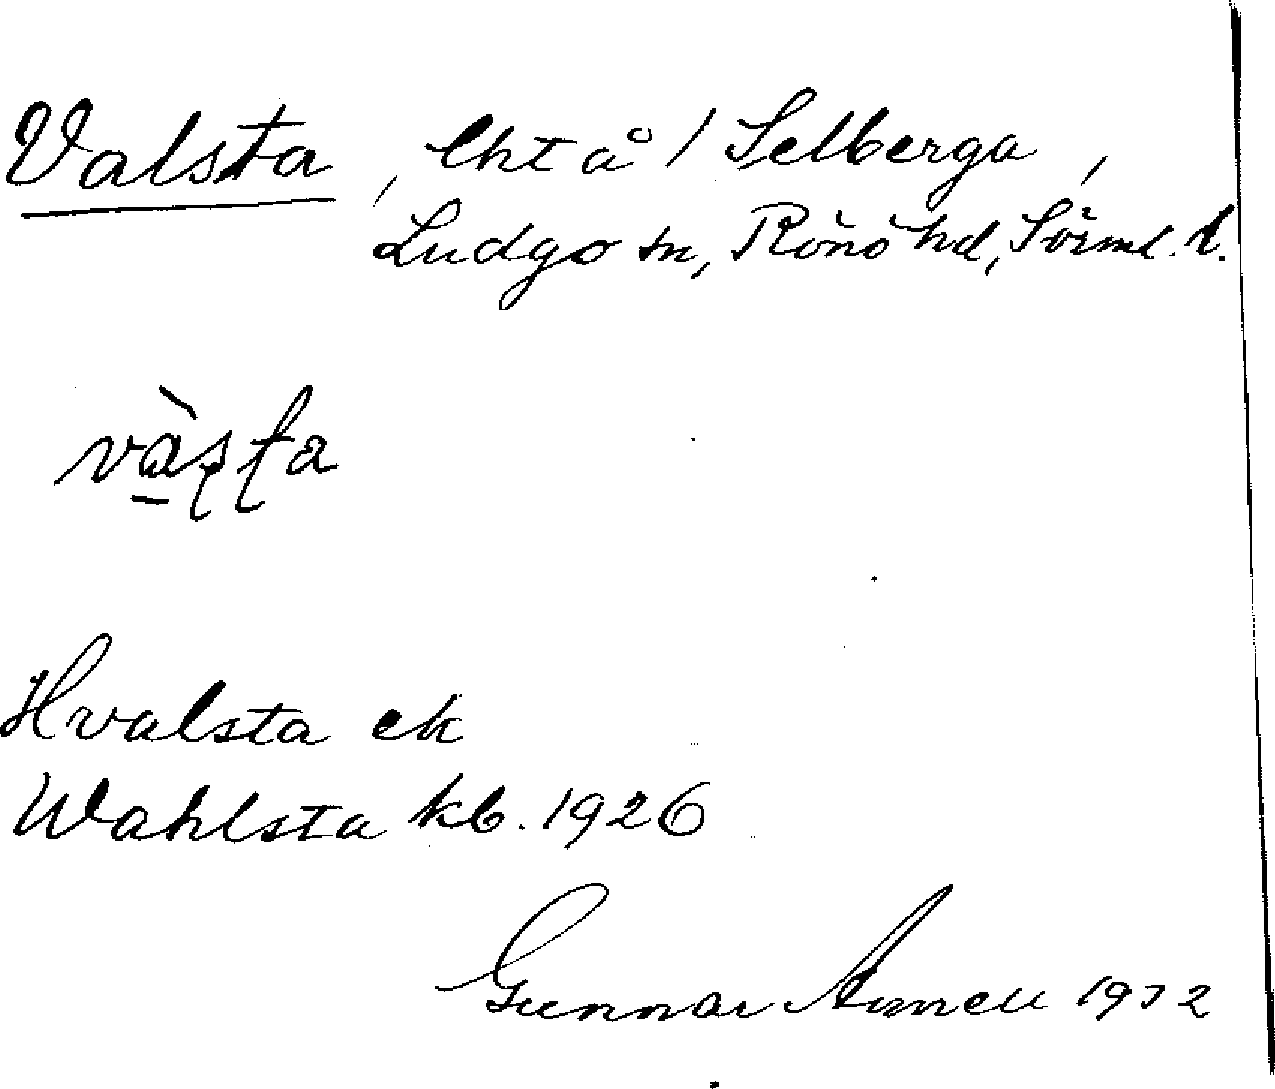 Valsta, lht å / Selberga,
Ludgo sn, Rönö hd, Sörml. l.
Hvalsta ek
Wahlsta kb. 1926
Gunnar 1932